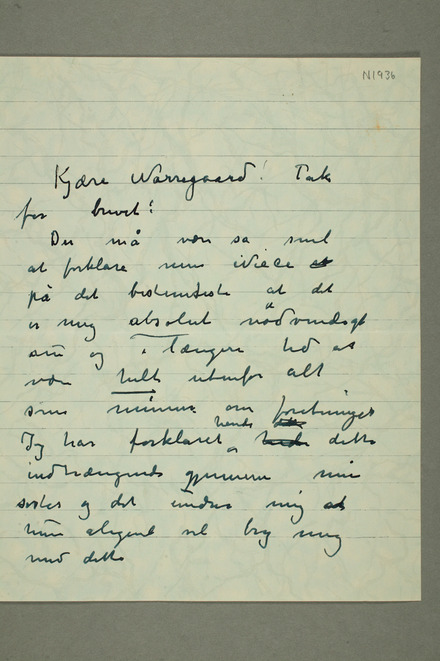 N1936
Kjære Nørregaard! Tak
for brevet!
Du må være så snil
at forklare min niece
på det bestemteste at det
er mig absolut nödvendigt
nu og i længere tid at
være helt utenfor alt
som minner om foretninger
Jeg har forklaret hende dette
indtrængende gjennem min
søster og det undrer mig at
hun aligevel vil bry mig
med dette